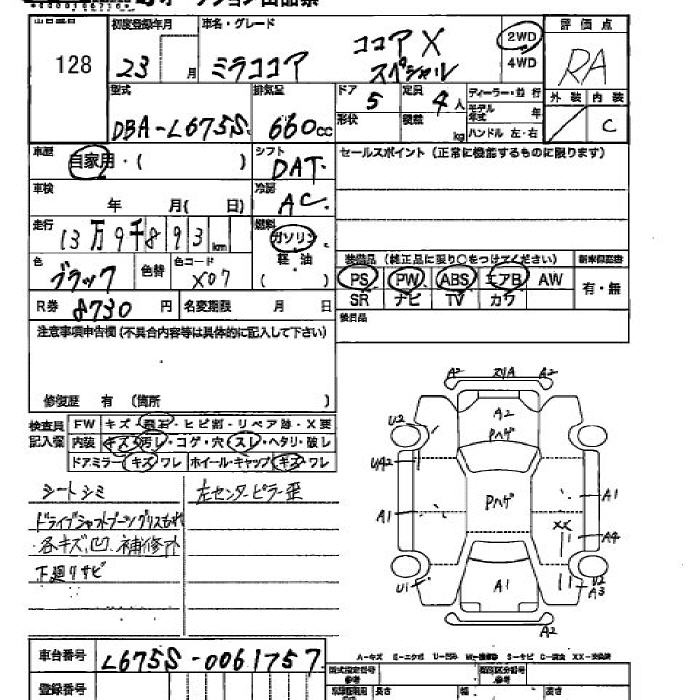 128
初度登録年月
23 月
車名・グレード
ミラココア
ココア X
スペシャル
2WD
4WD
評 価 点
RA
外 装 内 装
C
型式
DBA-L675S
排気量
660 cc
ドア
5
形状
定員
4 人
積載
kg
ディーラー・並 行
モデル年式 年
ハンドル 左・右
車歴
自家用・( )
シフト
DAT
セールスポイント (正常に機能するものに限ります)
車検
年 月( 日)
冷房
AC
走行
13万9千893 km
燃料
ガソリン
軽・油
( )
色
ブラック
色替
色コード
X07
装備品 (純正品に限り○をつけてください)
PS PW ABS エアB AW
SR ナビ TV カワ
新車保証書
有・無
R券 8730 円
名変期限 月 日
後日品
注意事項申告欄 (不具合内容等は具体的に記入して下さい)
修復歴 有 (箇所 )
検査員
記入欄
FW キズ・飛石・ヒビ割・リペア跡・X要
内装 キズ・汚レ・コゲ・穴・スレ・ヘタリ・破レ
ドアミラー キズ・ワレ
ホイール・キャップ キズ・ワレ
シートシミ
左センターピラー歪
ドライブシャフトブーツグリスもれ
各キズ凹 補修跡
下廻りサビ
A2 A2
A2
Pハゲ
U2
UA2
Pハゲ
A1
A1
XX
A4
U1
A1
U2
A3
A2
車台番号
L675S-0061757
登録番号
A-キズ E-エクボ U-凹み W-補修跡 S-サビ C-腐食 XX-交換済
型式指定番号
参考
類別区分番号
参考
長さ
幅
高さ